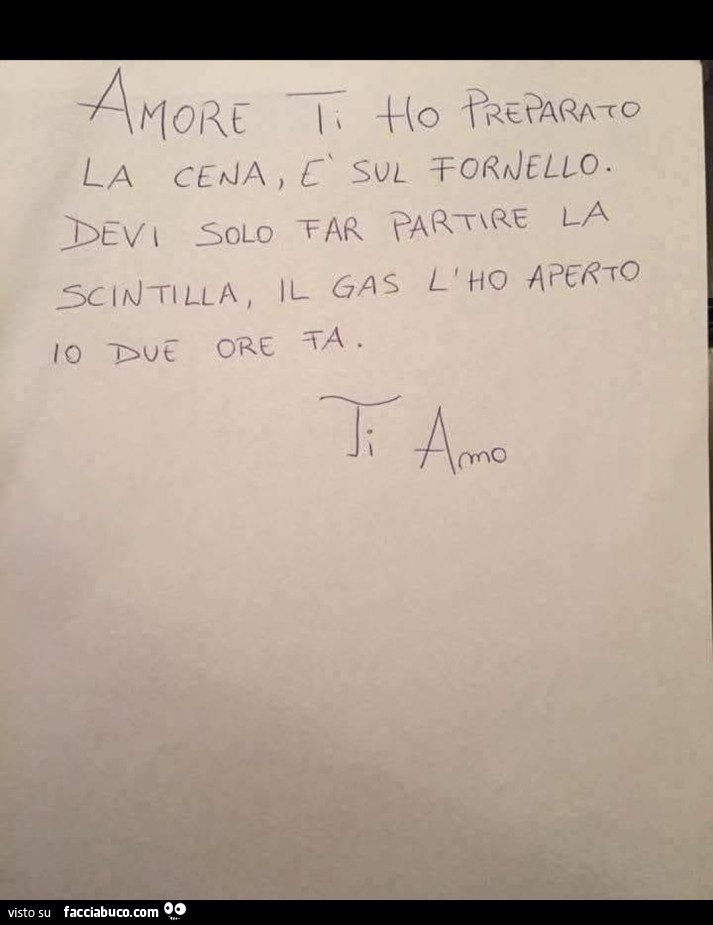 AMORE Ti Ho PREPARATO
LA CENA, E' SUL FORNELLO.
DEVI SOLO FAR PARTIRE LA
SCINTILLA, IL GAS L'HO APERTO
IO DUE ORE FA.
Ti Amo
visto su facciabuco.com